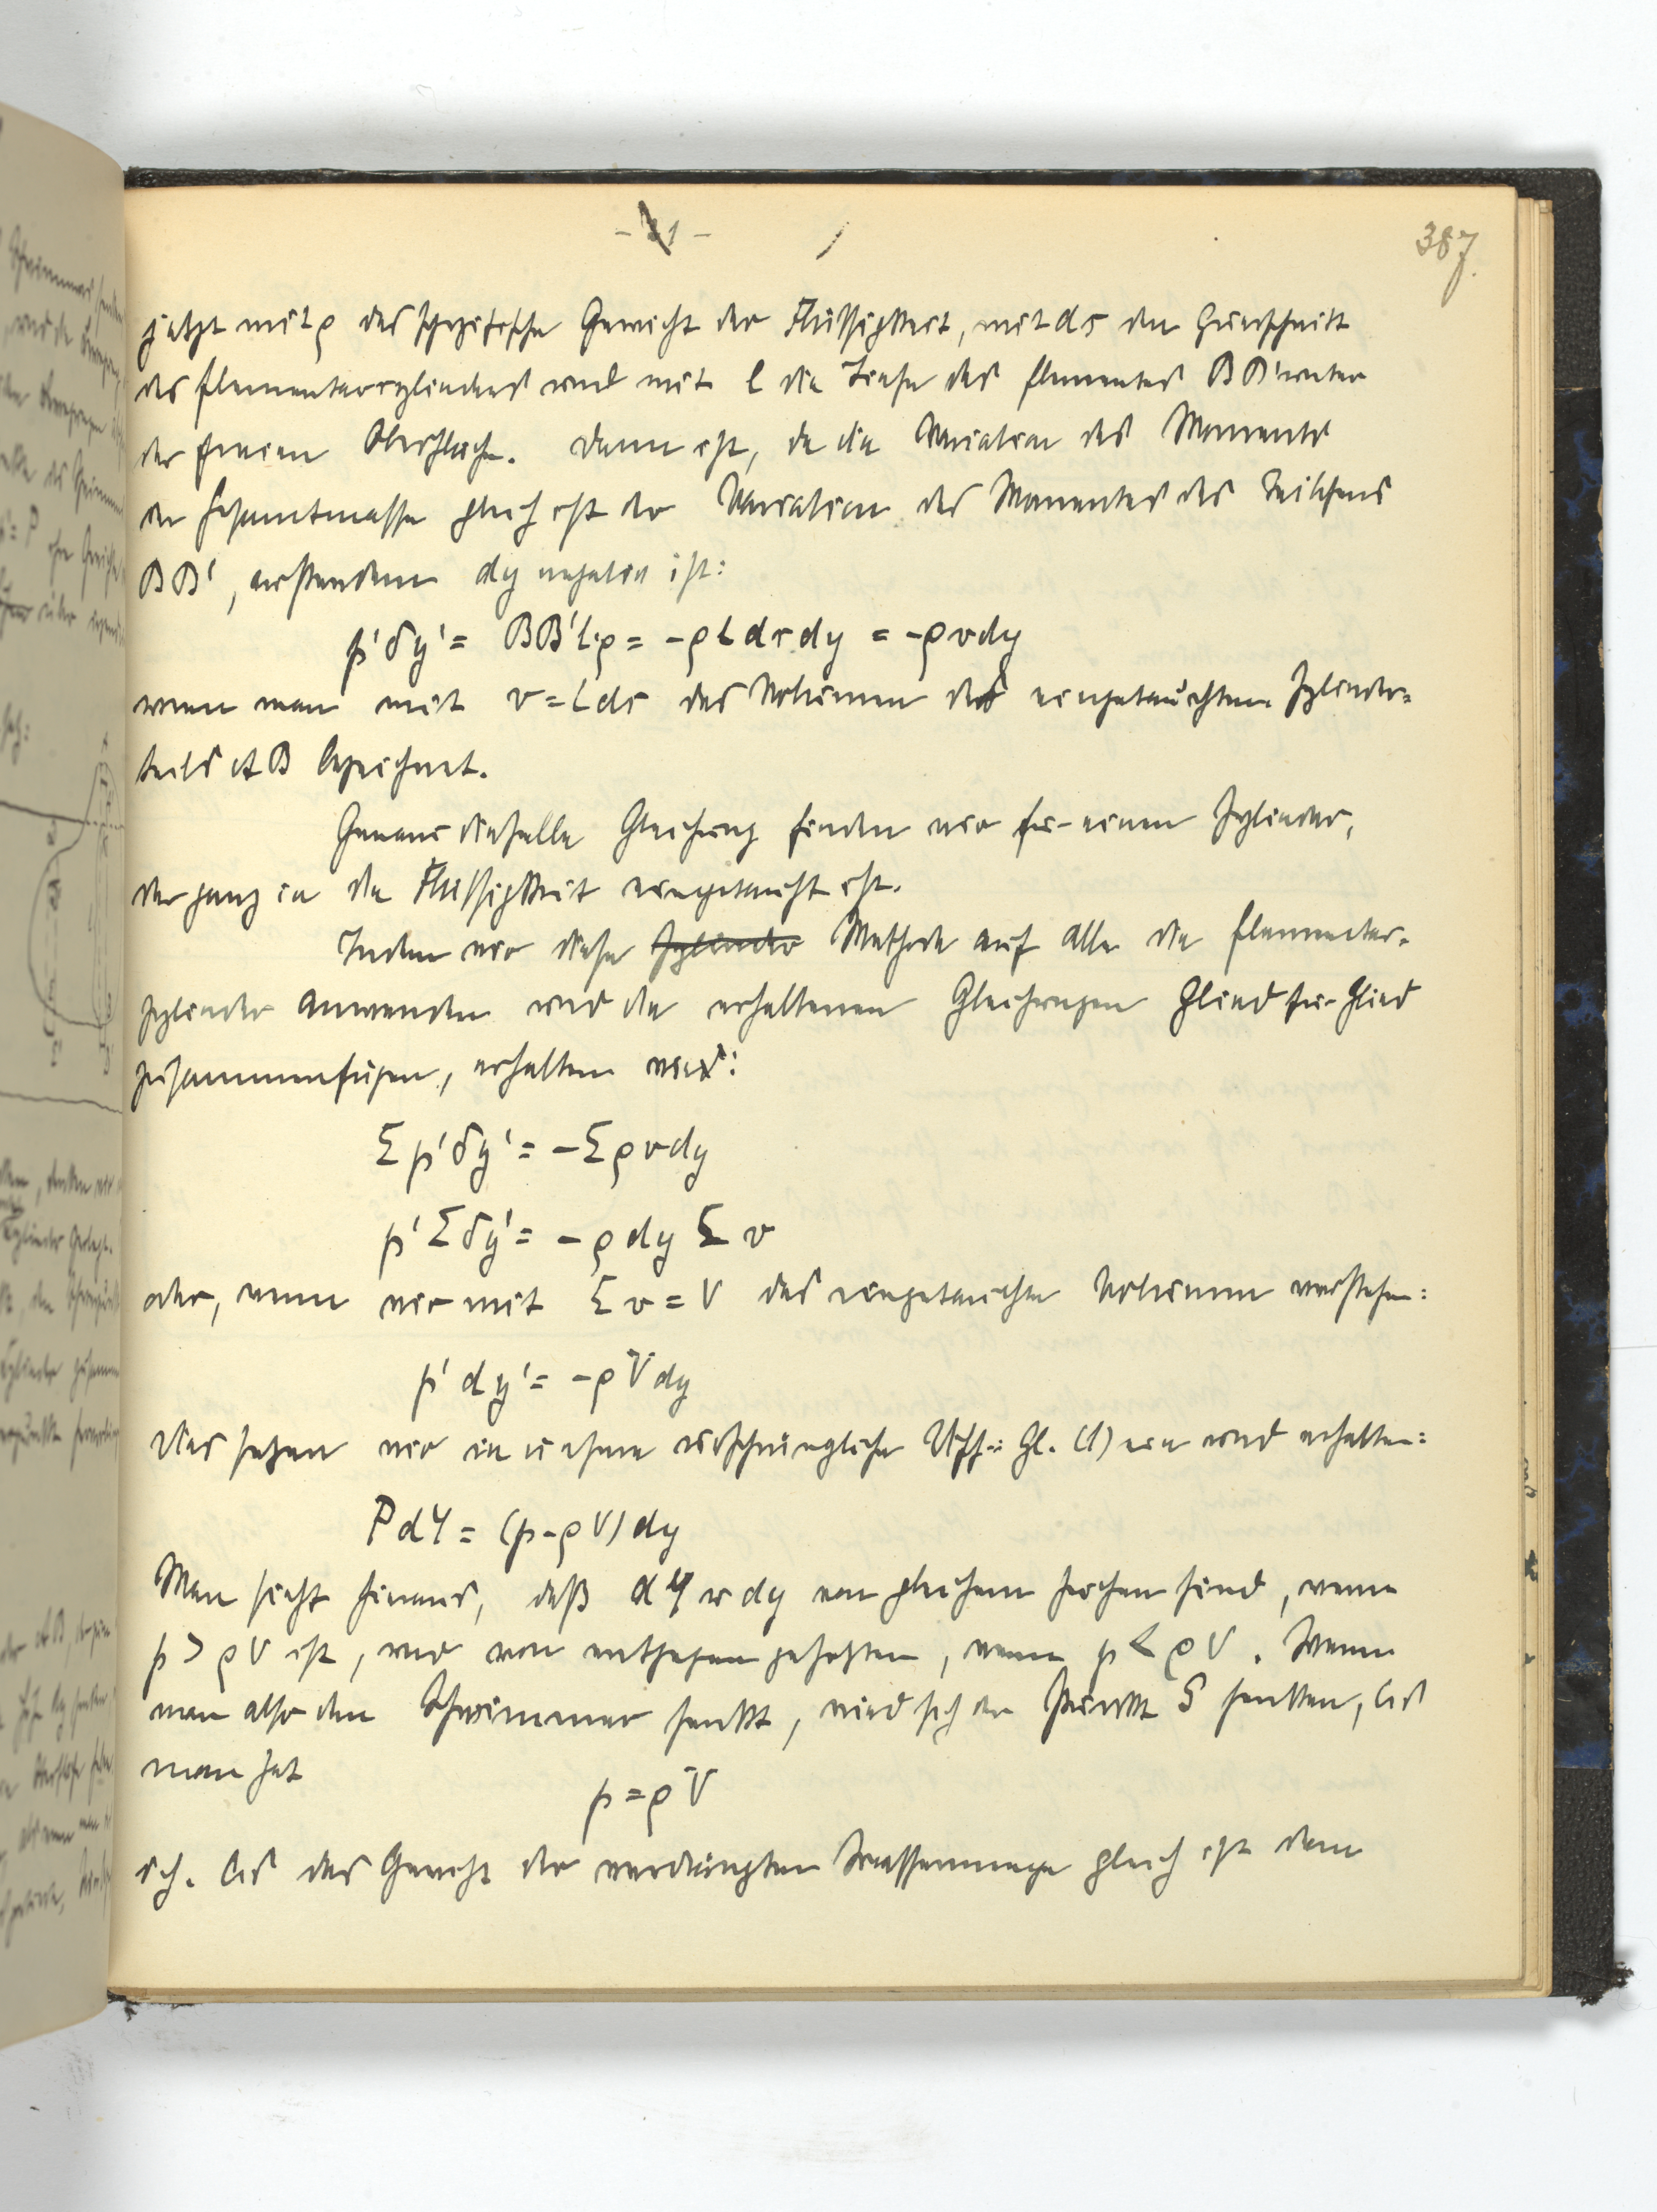 - 21 -
387.
jetzt mit ρ das spezifische Gewicht der Flüssigkeit, mit ds den Querschnitt
des Elementarzylinders und mit l die Tiefe des Elementes BB' unter
der freien Oberfläche. Dann ist, da die Variation des Moments
der Gesamtmasse gleich ist der Variation des Momentes des Teilchens
BB', außerdem dy negativ ist:
p'δy' = BB'lρ = -ρl ds dy = -ρvdy
wenn man mit v = lds das Volumen des eingetauchten Zylinder=
teils AB bezeichnet.
Genau dieselbe Gleichung finden wir für einen Zylinder,
der ganz in die Flüssigkeit eingetaucht ist.
Indem wir diese Zylinder Methode auf alle die Elementar=
zylinder anwenden und die erhaltenen Gleichungen Glied für Glied
zusammenfügen, erhalten wir:
Σ p'δy' = -Σρvdy
p'Σδy' = -ρdy Σ v
oder, wenn wir mit Σv = V das eingetauchte Volumen verstehen:
p'dy' = -ρVdy
Das setzen wir in unsere ursprüngliche Gl. (1) ein und erhalten:
PdY = (p-ρV)dy
Man sieht hieraus, daß dY u dy von gleichem Zeichen sind, wenn
p > ρV ist, und von entgegengesetzten, wenn p < ρV. Wenn
man also den Schwimmer senkt, wird sich der Punkt S senken, bis
man hat
p = ρV
d.h. bis das Gewicht der verdrängten Wassermenge gleich ist dem